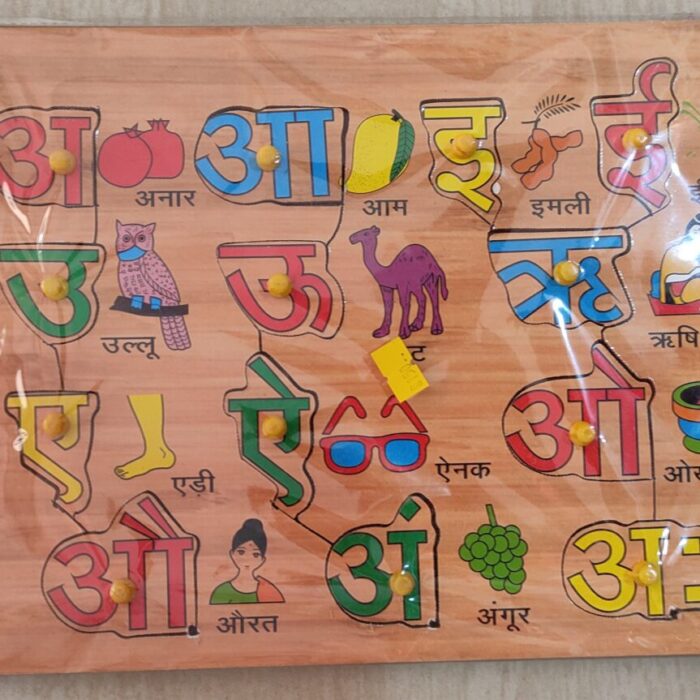 अ अनार आ आम इ इमली ई
उ उल्लू ऊ ट ऋ ऋषि
ए एड़ी ऐ ऐनक ओ
औ औरत अं अंगूर अः